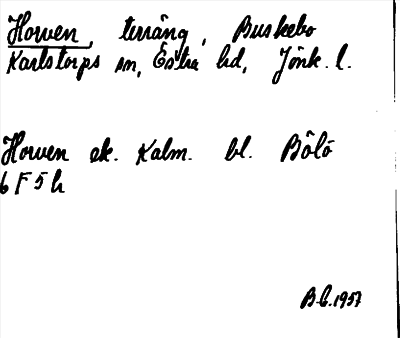 Horven, terräng, Buskebo
Karlstorps sn, Östra hd, Jönk. l.
Horven ek. Kalm. bl. Bölö
6 F 5 h
B.E. 1957